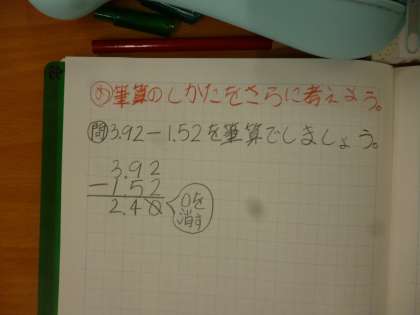 め筆算のしかたをさらに考えよう。
問3.92-1.52を筆算でしましょう。
3.92
-1.52
2.40
0を
消す